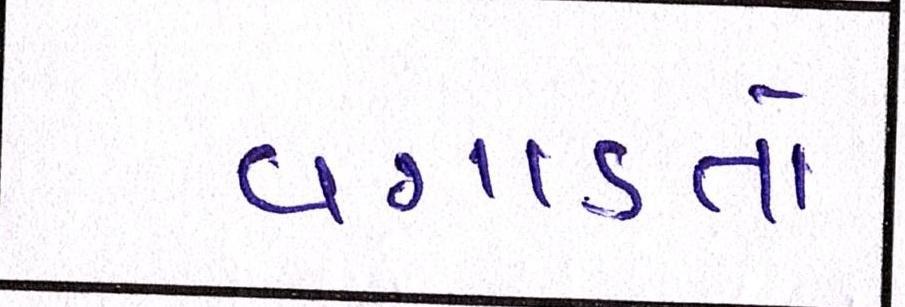 વગાડતો